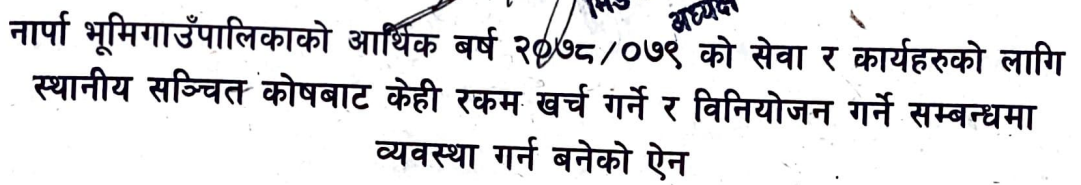 अध्यक्ष
नार्पा भूमिगाउँपालिकाको आर्थिक बर्ष २०७८/०७९ को सेवा र कार्यहरुको लागि
स्थानीय सञ्चित कोषबाट केही रकम खर्च गर्ने र विनियोजन गर्ने सम्बन्धमा
व्यवस्था गर्न बनेको ऐन